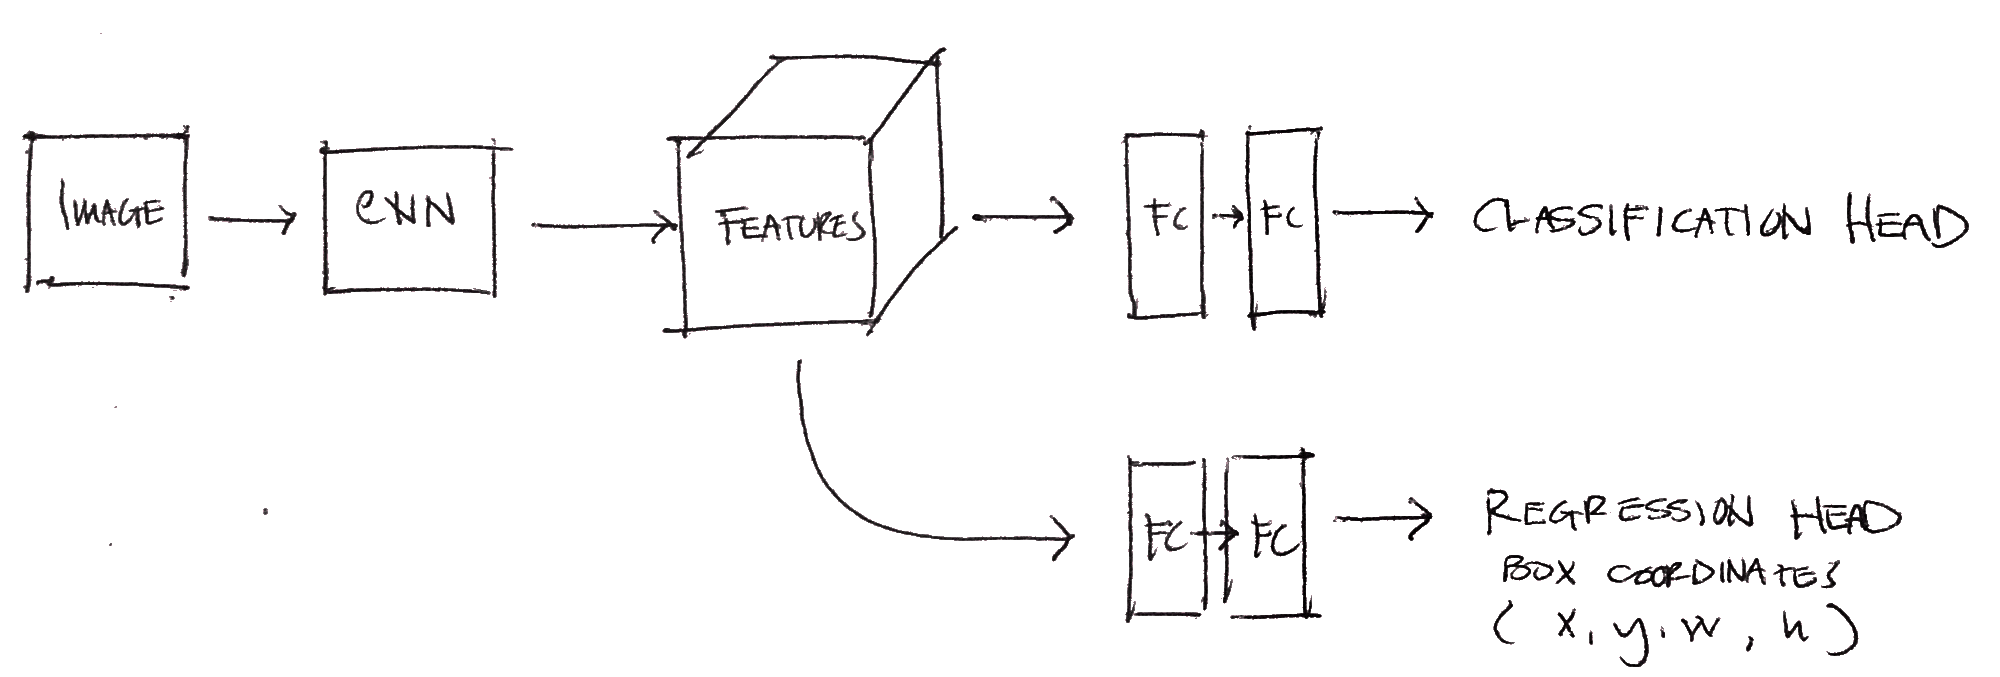 IMAGE
CNN
FEATURES
FC
FC
CLASSIFICATION HEAD
FC
FC
REGRESSION HEAD
BOX COORDINATES
( x, y, w, h )